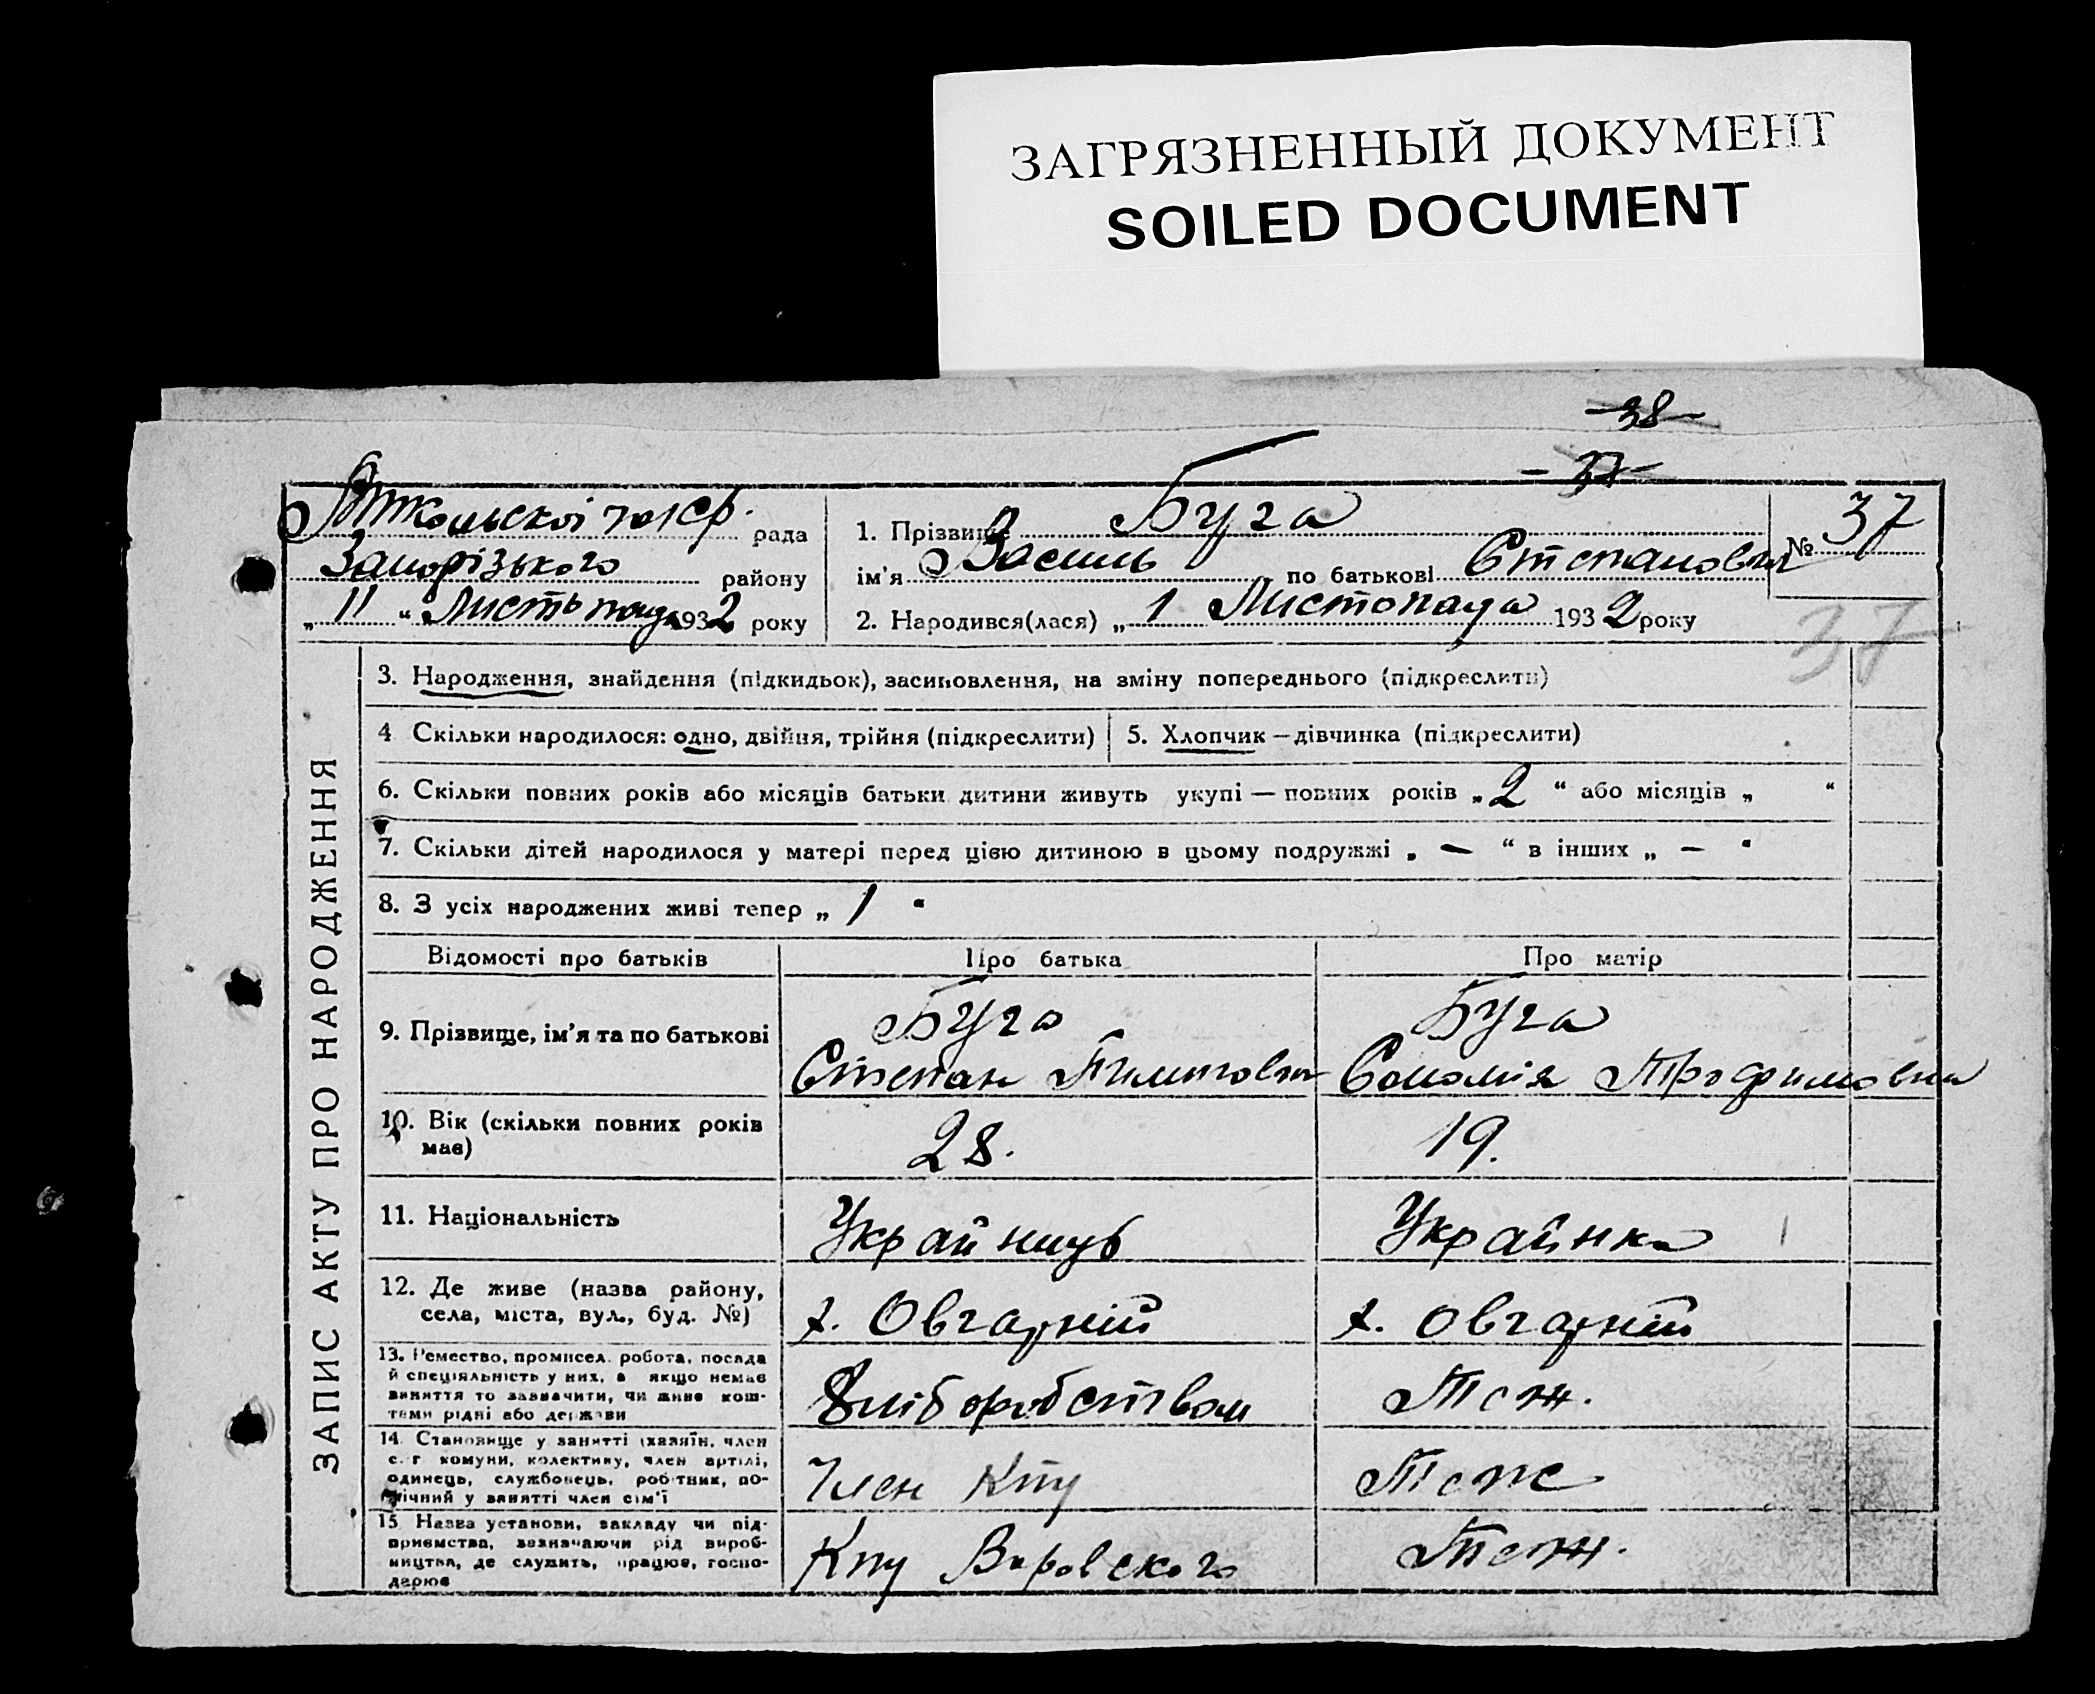 ЗАГРЯЗНЕННЫЙ ДОКУМЕНТ
SOILED DOCUMENT
38
37
рада
Запорізького району
„ 11 “ Листьпада 1932 року
1. Прізвище Буга
№ 37
ім'я Василь по батькові Степанович
2. Народився(лася) „ 1 Листопада 1932 року
37
ЗАПИС АКТУ ПРО НАРОДЖЕННЯ
3. Народження, знайдення (підкидьок), засиновлення, на зміну попереднього (підкреслити)
4 Скільки народилося: одно, двійня, трійня (підкреслити)
5. Хлопчик — дівчинка (підкреслити)
6. Скільки повних років або місяців батьки дитини живуть укупі — повних років „ 2 “ або місяців „ “
7. Скільки дітей народилося у матері перед цією дитиною в цьому подружжі „ — “ в інших „ — “
8. З усіх народжених живі тепер „ 1 “
Відомості про батьків
Про батька
Про матір
9. Прізвище, ім'я та по батькові
Буга
Степан
Буга
Соломія Трофимовна
10. Вік (скільки повних років
має)
28.
19.
11. Національність
Украйнець
Украйнка
12. Де живе (назва району,
села, міста, вул., буд. №)
х. Овчарній
х. Овчарній
13. Ремество, промисел, робота, посада
й спеціяльність у них, а якщо немає
заняття то зазначити, чи живе кош-
тами рідні або держави
Хліборобством
Тож.
14. Становище у занятті (хазяїн, член
с.-г комуни, колективу, член артілі,
одинець, службовець, робітник, по-
мічний у занятті член сім'ї
Член Кпу
Тож
15 Назва установи, закладу чи під-
приємства, зазначаючи рід вироб-
ництва, де служить, працює, госпо-
дарює
Кпу Воровского
Тож.